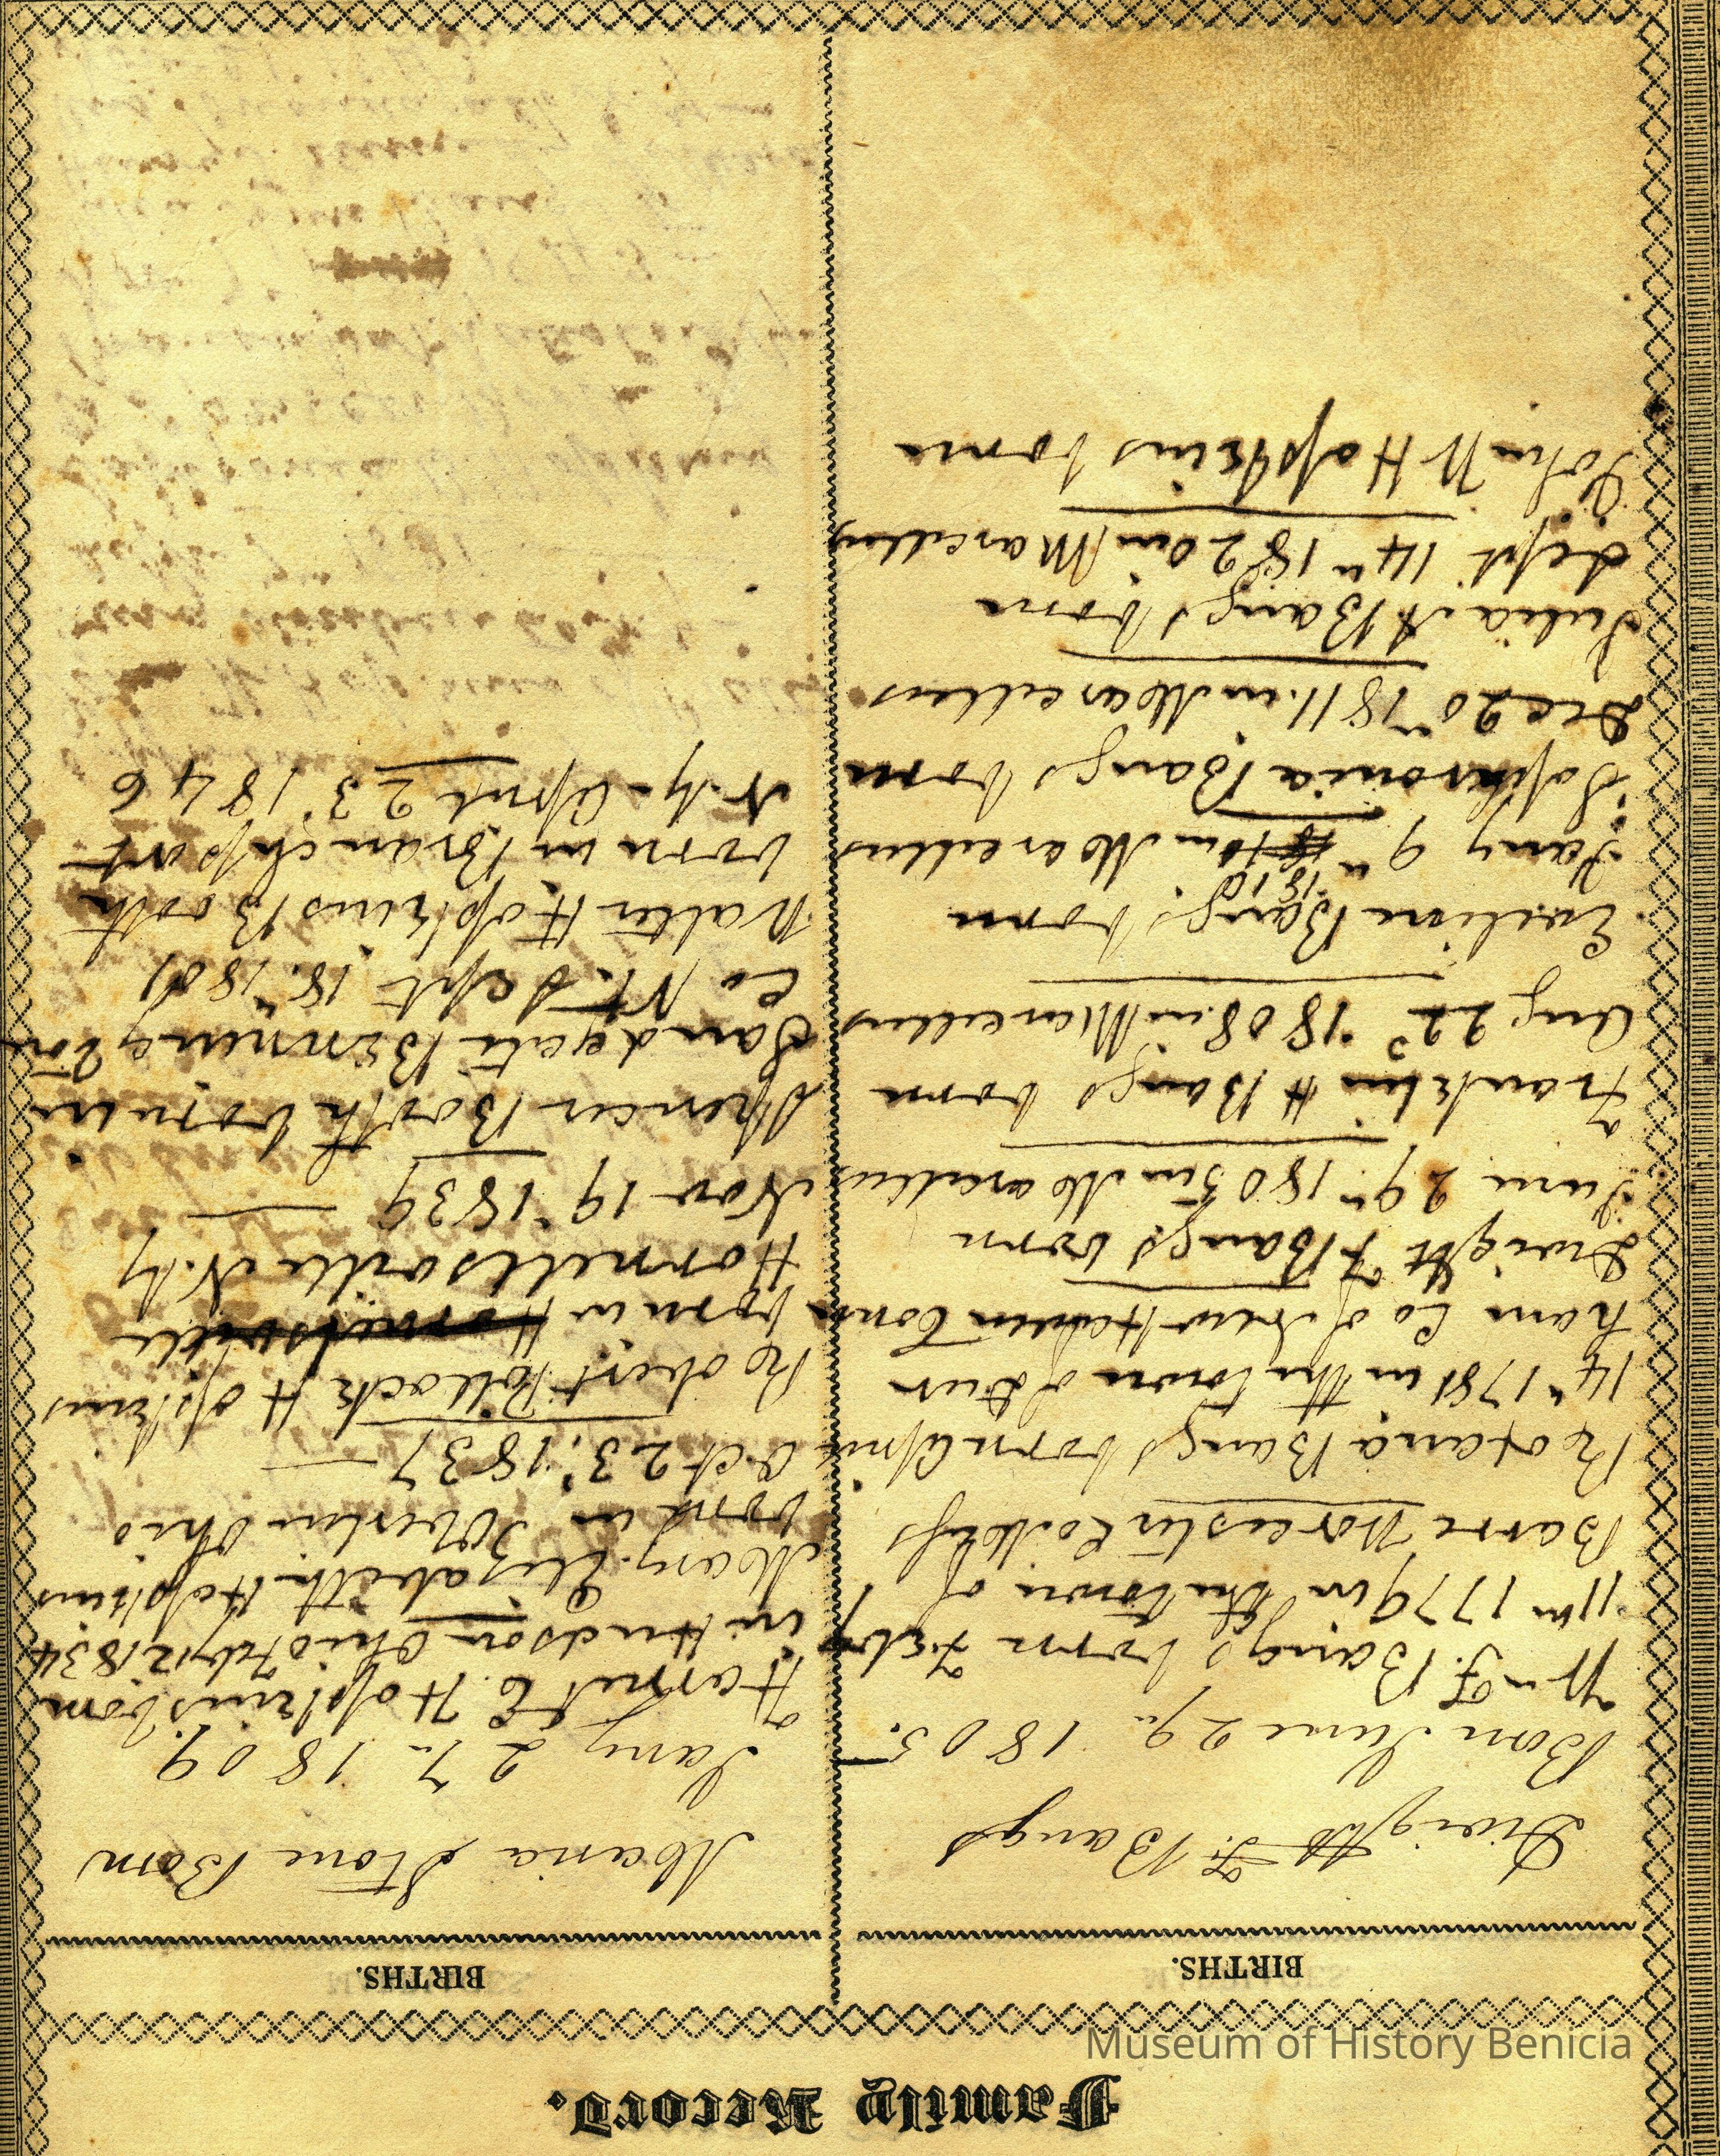 Family Record.
BIRTHS.
Dwight F. Bangs
Born June 29" 1805.
Wm F. Bangs born Feby
11th 1779 in the town of
Barre Worcester Co
Roxana Bangs born April
14" 1781 in the town of Dur
ham Co of New Haven Conn
Dwight F Bangs born
June 29" 1805 in Marcellus
Franklin H Bangs born
Aug 22d 1808. in Marcellus
Eveline Bangs born
1810
Jany 9" in Marcellus
Sophronia Bangs born
Dec 20" 1811. in Marcellus
Julia A Bangs born
Sept 14" 1820 in Marcellus
John W Hopkins born
BIRTHS.
Maria Stone Born
Jany 27" 1809.
Harriet E. Hopkins born
in Hudson Ohio Feby 12 1834
Mary Elizabeth Hopkins
born in Oberlin Ohio
Oct 23, 1837
Robert Pollock Hopkins
born in Hornellsville
Hornellsville N.Y
Nov 19" 1839
Spencer Booth born in
Sandgate Bennington
Co Vt. Sept 18" 1801
Walter Hopkins Booth
born in Branchport
N.Y- April 23, 1846
Museum of History Benicia